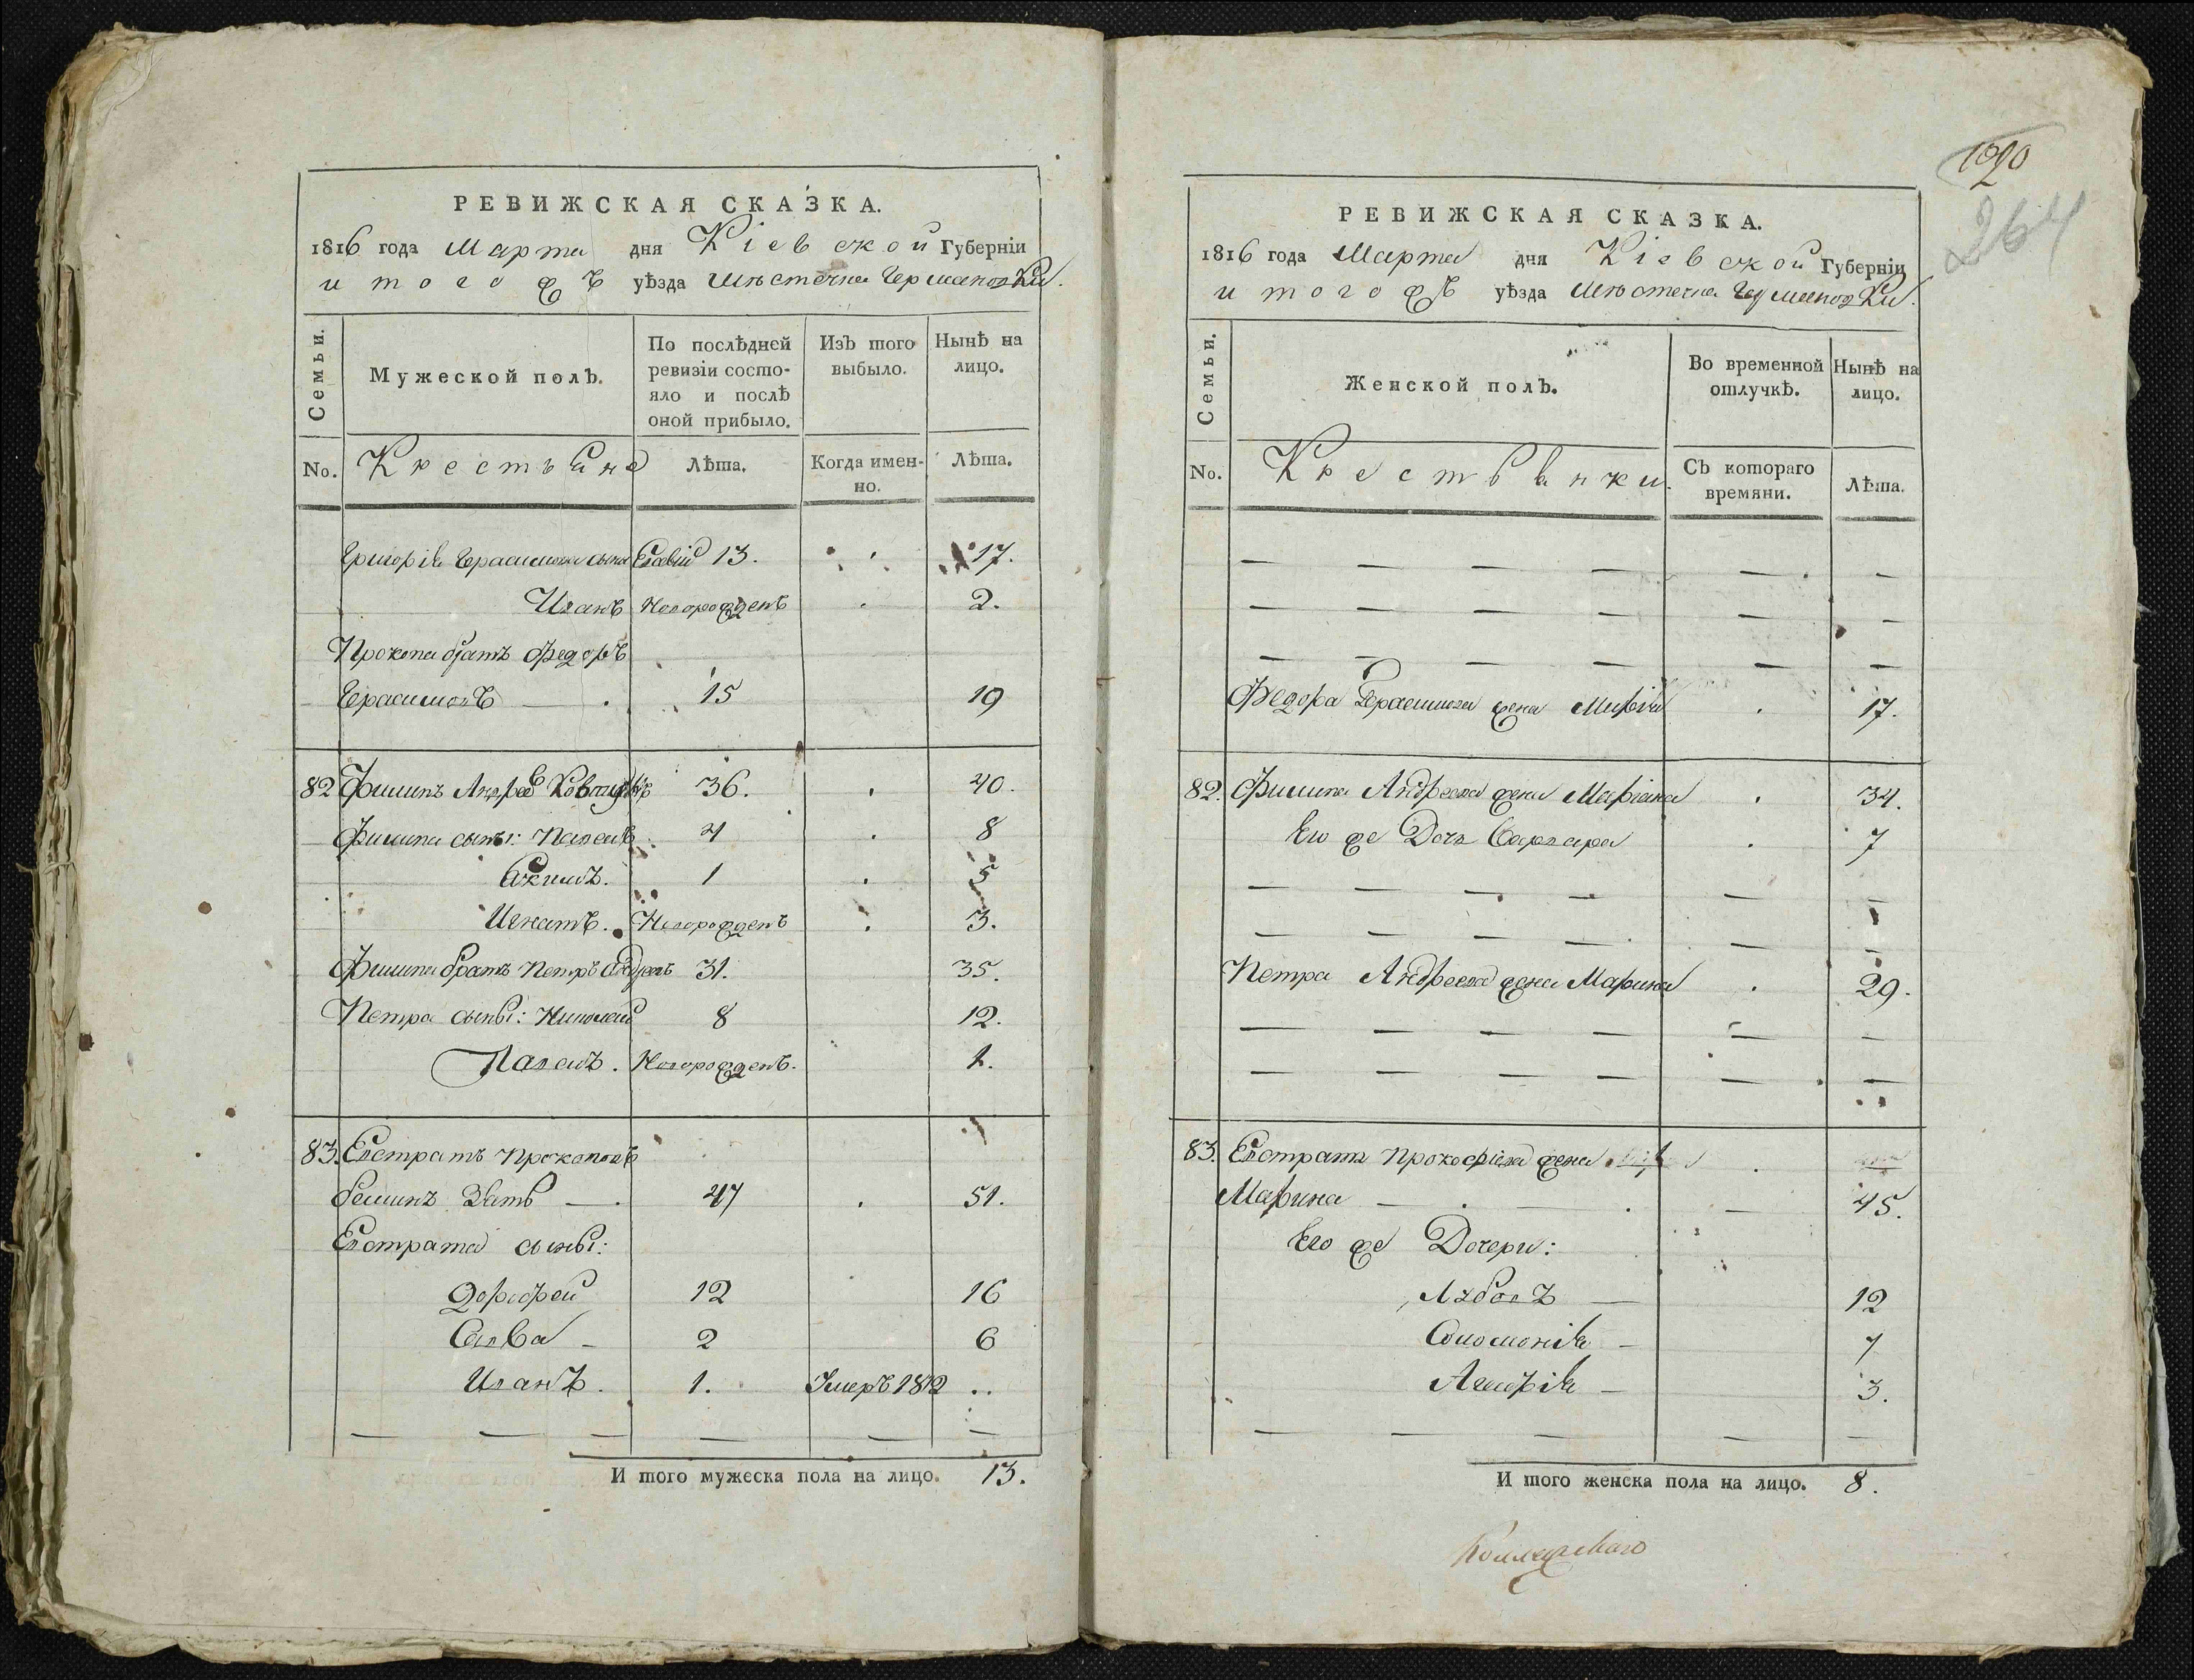 РЕВИЖСКАЯ СКАЗКА.
1816 года Марта дня Кіевской Губерніи
и того жъ уѣзда мѣстечка Германовки.
Семьи.
Мужеской полъ.
По послѣдней ревизіи состо-
яло и послѣ
оной прибыло.
Изъ того
выбыло.
Нынѣ на
лицо.
No. Крестьяне
Лѣта.
Когда имен-
но.
Лѣта.
Григорія Герасимова сынъ 13. 17.
Иванъ Новорожденъ 2.
Прокопа братъ Федоръ
Герасимовъ — 15 19
82 Филипъ Андреевъ 36. 40.
Филипа сыны: Павелъ 4 8
Якимъ. 1 5
Игнатъ. Новорожденъ 3.
Филипа братъ Петръ Андреевъ 31. 35.
Петра сыны: Николай 8 12.
Павелъ. Новорожденъ. 1.
83. Евстратъ Прокоповъ
Зять — 47 51.
Евстрата сыны:
Дорофей 12 16
Савва - 2 6
Иванъ. 1. Умеръ 1812 ..
И того мужеска пола на лицо. 13.
1020
264
РЕВИЖСКАЯ СКАЗКА.
1816 года Марта дня Кіевской Губерніи
и того жъ уѣзда мѣстечка Германовки.
Семьи.
Женской полъ.
Во временной
отлучкѣ.
Нынѣ на
лицо.
No. Крестьянки.
Съ котораго
времяни.
Лѣта.
Федора Герасимова жена Марія 17.
82. Филипа Андреева жена Маріана 34.
Его же Дочь Варвара 7
Петра Андреева жена Марина 29.
83. Евстрата Прокофіева жена
Марина — 45.
Его же Дочери:
Любовъ — 12
Соломонія — 7
Агафія — 3.
И того женска пола на лицо. 8.
Коллежскаго